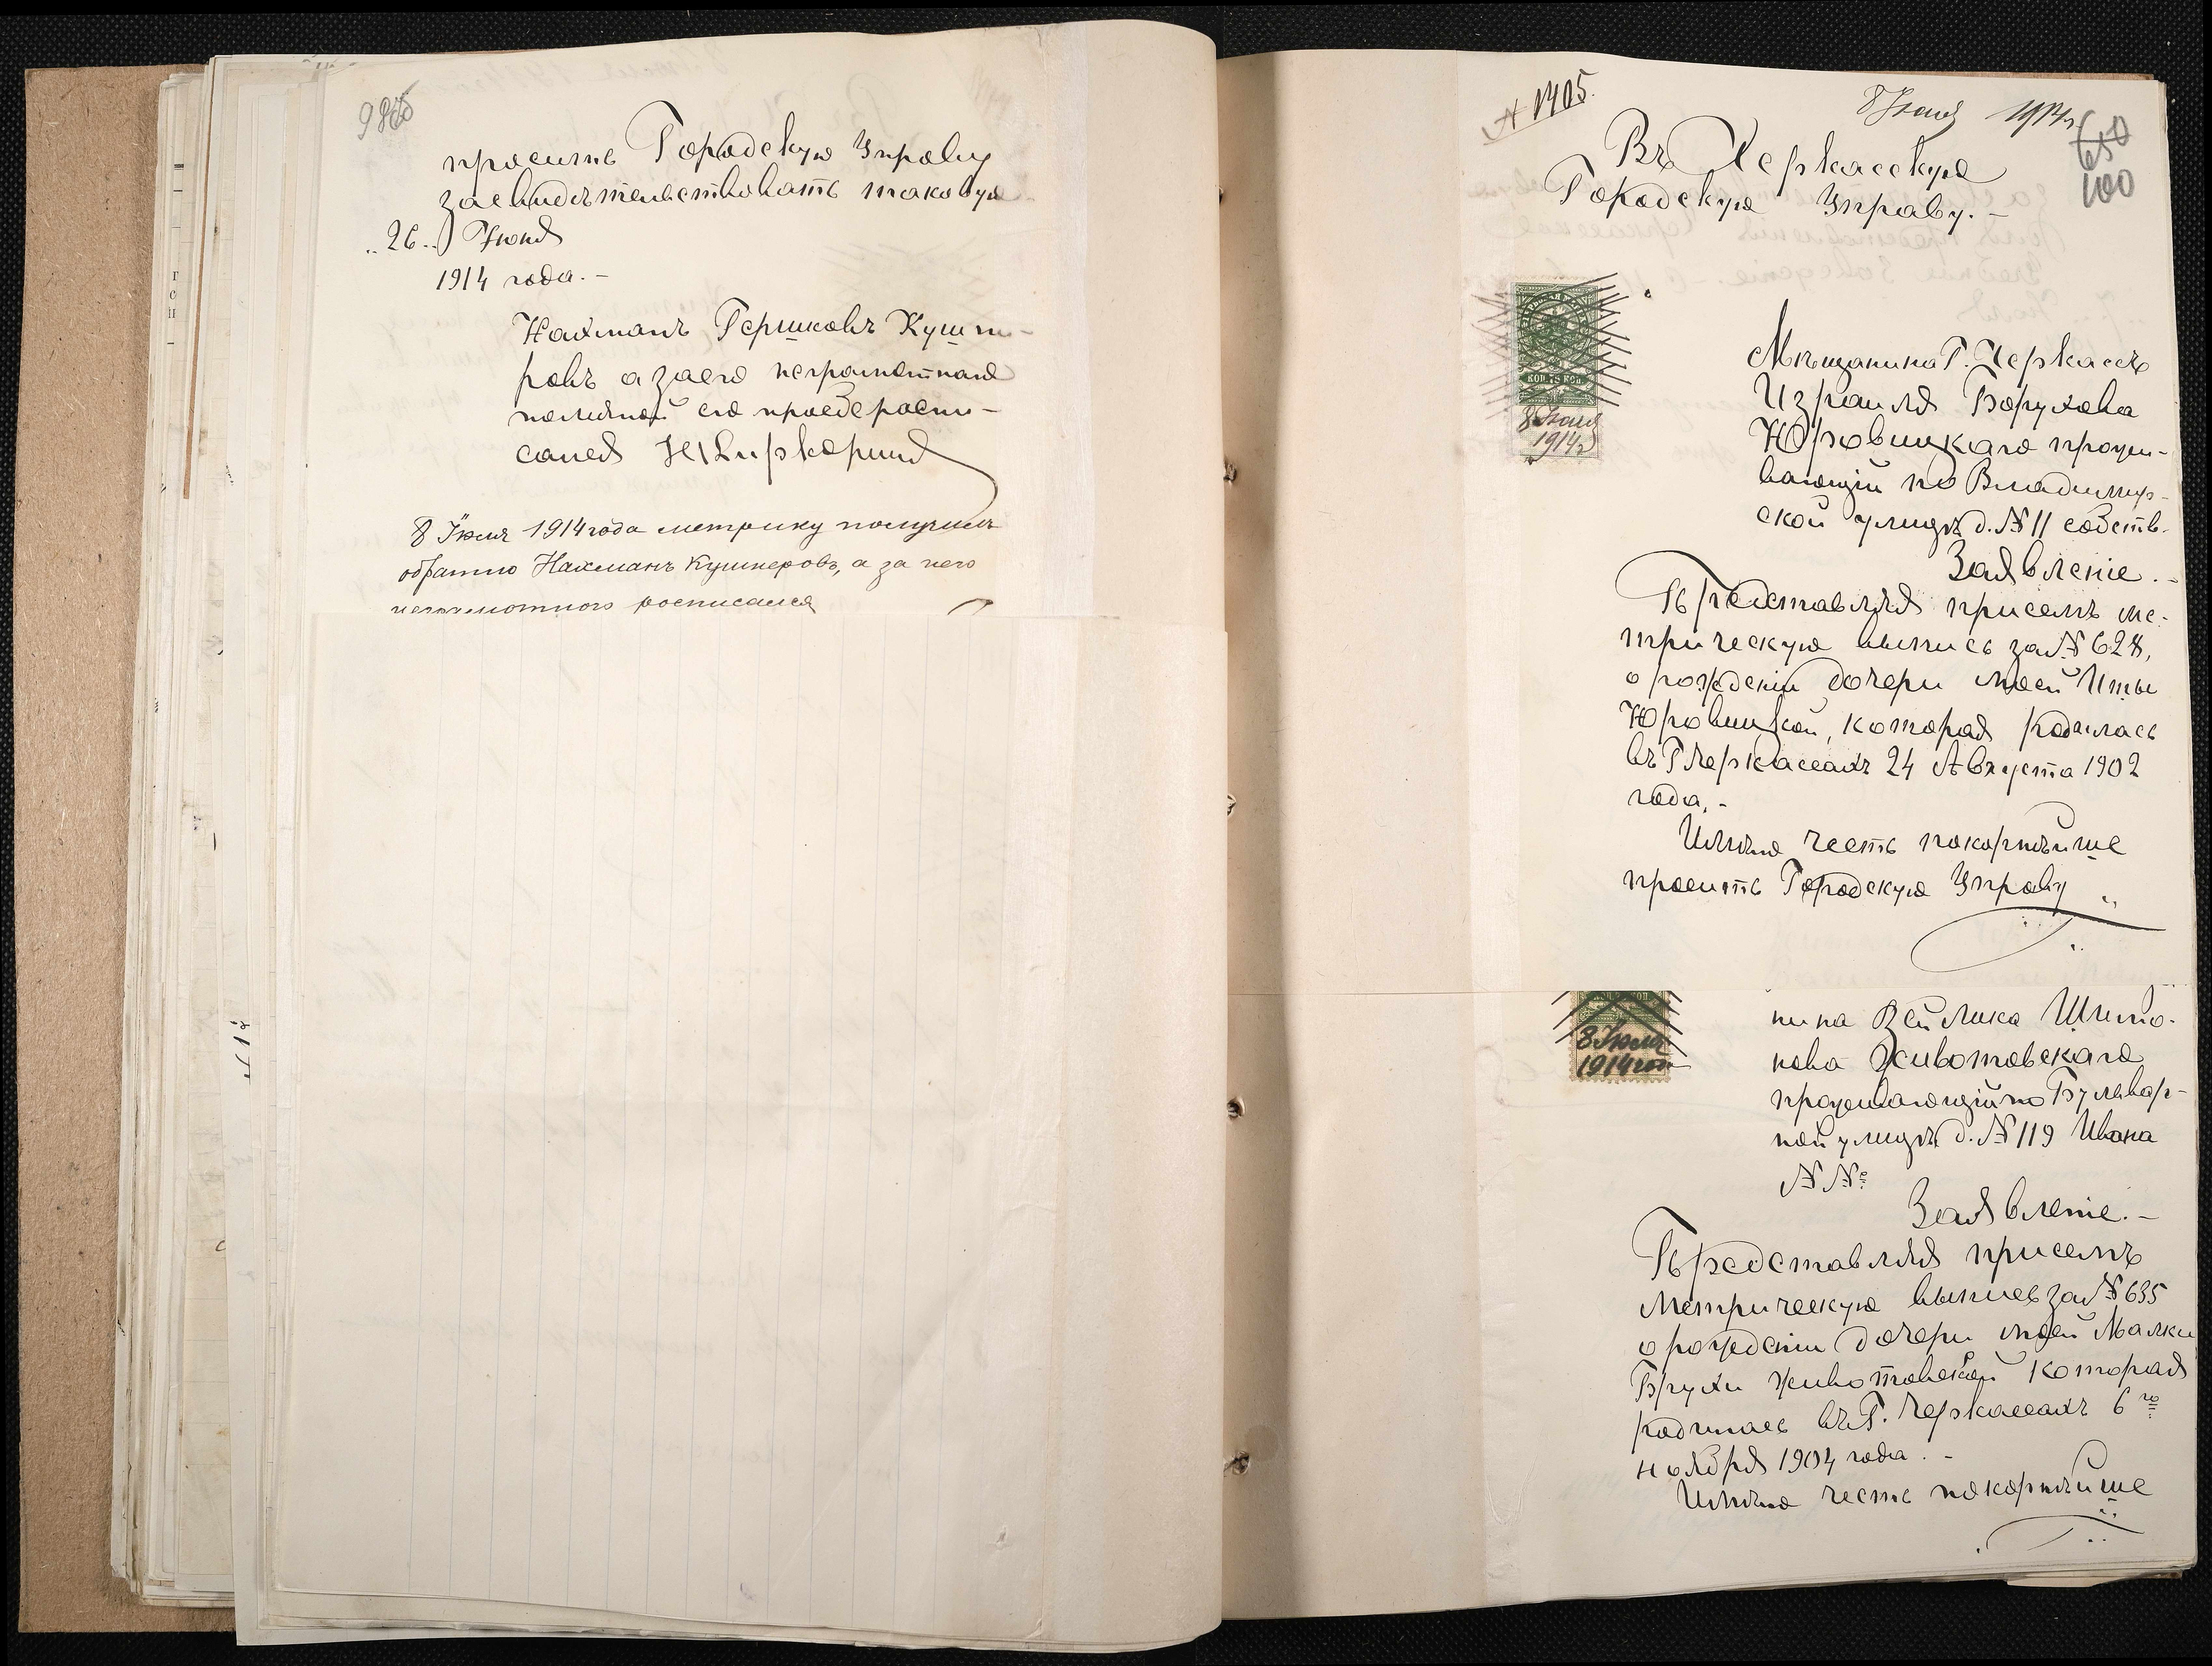 просить Городскую Управу
засвидѣтельствовать таковую
"26" Іюня
1914 года.-
Нахманъ Гершковъ Кушни-
ровъ а за его неграмотнаго
по личной его прозбе распи-
сался
8 Іюля 1914 года метрику получилъ
обратно Нахманъ Кушнеровъ, а за него
неграмотного росписался
№ 1405.
8 Іюля 1914 г.
650
100
Въ Черкасскую
Городскую Управу.-
КОП. 75 КОП.
8 Іюля
1914 г
Мѣщанина Г. Черкассъ
Израиля Борухова
Юровицкаго прожи-
вающій по Владимир-
ской улицѣ д. № 11 собств.
Заявленіе.-
Представляя присемъ ме-
трическую выпись за № 628,
о рожденіи дочери моей Иты
Юровицкой, которая родилась
въ Г Черкассахъ 24 Августа 1902
года.-
Имѣю честь покорнѣйше
просить Городскую Управу
8 Іюля
1914 год
нина Зейлика Шимо-
нова Животовскаго
проживающій по Бульвар-
ной улицѣ д. № 119 Ивана
№ №
Заявленіе.-
Представляя присемъ
Метрическую выпись за № 635
о рожденіи дочери моей Малки
Брухи Животовской которая
родилась въ Г. Черкассахъ 6го
ноября 1904 года.-
Имѣю честь покорнѣйше